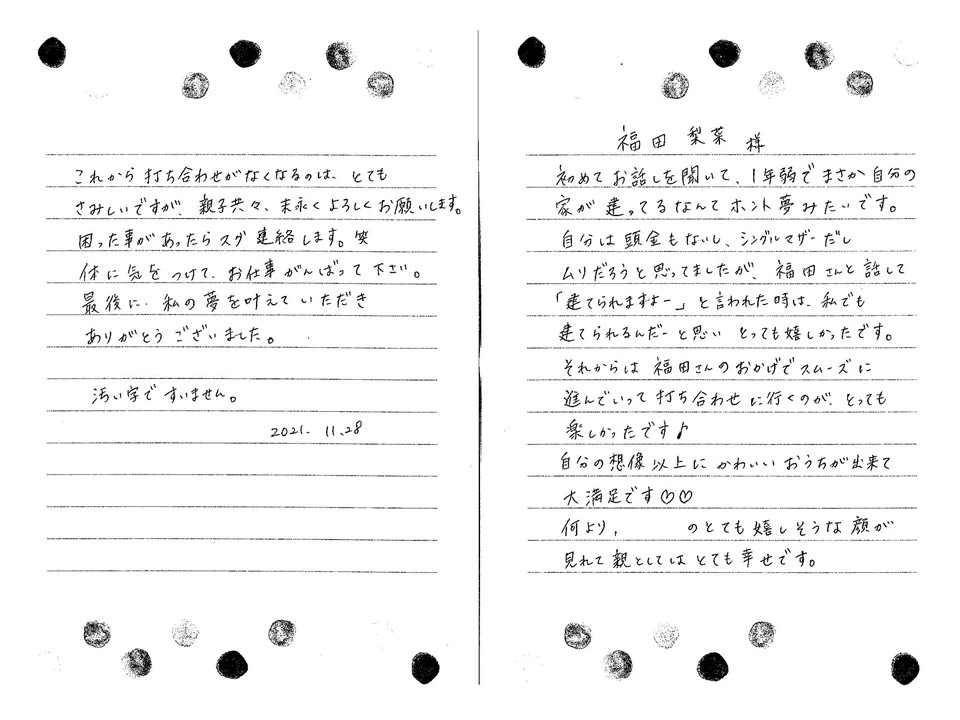 福田 梨菜 様
初めてお話しを聞いて、1年弱でまさか自分の
家が建ってるなんてホント夢みたいです。
自分は頭金もないし、シングルマザーだし
ムリだろうと思ってましたが、福田さんと話して
「建てられますよー」と言われた時は、私でも
建てられるんだーと思い とっても嬉しかったです。
それからは 福田さんのおかげでスムーズに
進んでいって打ち合わせに行くのが、とっても
楽しかったです♪
自分の想像以上に かわいい おうちが出来て
大満足です♡♡
何より, のとても嬉しそうな顔が
見れて親としては とても幸せです。
これから打ち合わせがなくなるのは、とても
さみしいですが、親子共々、末永くよろしくお願いします。
困った事があったらスグ連絡します。笑
体に気をつけて、お仕事がんばって下さい。
最後に、私の夢を叶えていただき
ありがとうございました。
汚い字ですいません。
2021. 11.28